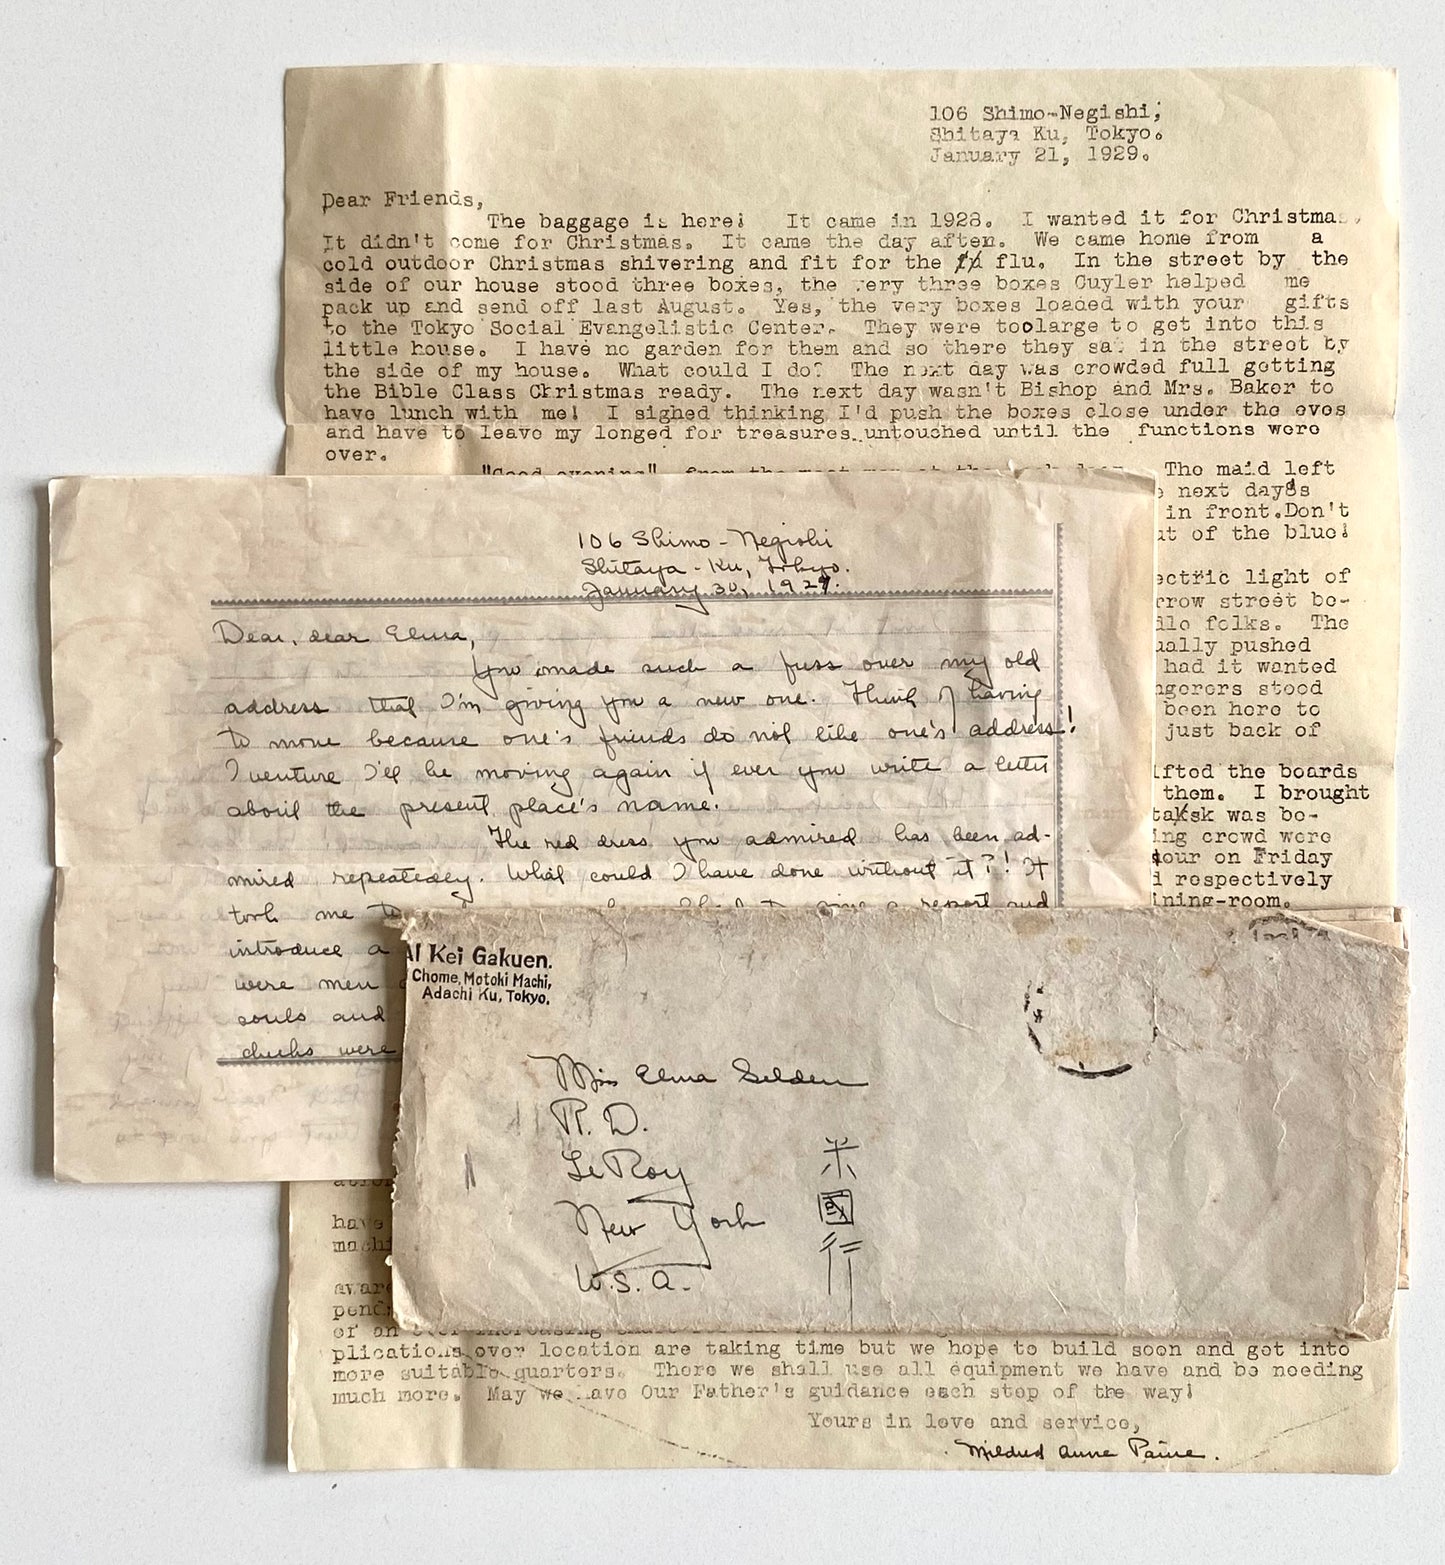 106 Shimo-Negishi,
Shitaya Ku, Tokyo.
January 21, 1929.
Dear Friends,
The baggage is here! It came in 1928. I wanted it for
It didn't come for Christmas. It came the day after. We came home from a
cold outdoor Christmas shivering and fit for the flu. In the street by the
side of our house stood three boxes, the very three boxes Cuyler helped me
pack up and send off last August. Yes, the very boxes loaded with your gifts
to the Tokyo Social Evangelistic Center. They were toolarge to get into this
little house. I have no garden for them and so there they sat in the street by
the side of my house. What could I do? The next day was crowded full getting
the Bible Class Christmas ready. The next day wasn't Bishop and Mrs. Baker to
have lunch with me! I sighed thinking I'd push the boxes close under the eves
and have to leave my longed for treasures untouched until the functions were
over.
"Good evening", from the The maid left
next day's
in front.Don't
of the blue!
light of
street be-
folks. The
pushed
had it wanted
stood
been here to
just back of
the boards
them. I brought
was be-
crowd were
on Friday
respectively
106 Shimo-Negishi
Shitaya-Ku, Tokyo.
January 30, 1929.
Dear, dear Elma,
You made such a fuss over my old
address that I'm giving you a new one. Think of having
to move because one's friends do not like one's address!
I venture I'll be moving again if ever you write a letter
about the present place's name.
The red dress you admired has been ad-
mired repeatedly. What could I have done without it?! It
took me to a report and
introduce a
were men
souls and
checks were
Ai Kei Gakuen.
Chome, Motoki Machi,
Adachi Ku, Tokyo.
Miss Elma Selden
R.D.
LeRoy
New York
U.S.A.
米國行
have
plications over location are taking time but we hope to build soon and get into
more suitable quarters. There we shall use all equipment we have and be needing
much more. May we have Our Father's guidance each step of the way!
Yours in love and service,
Mildred Anne Paine.